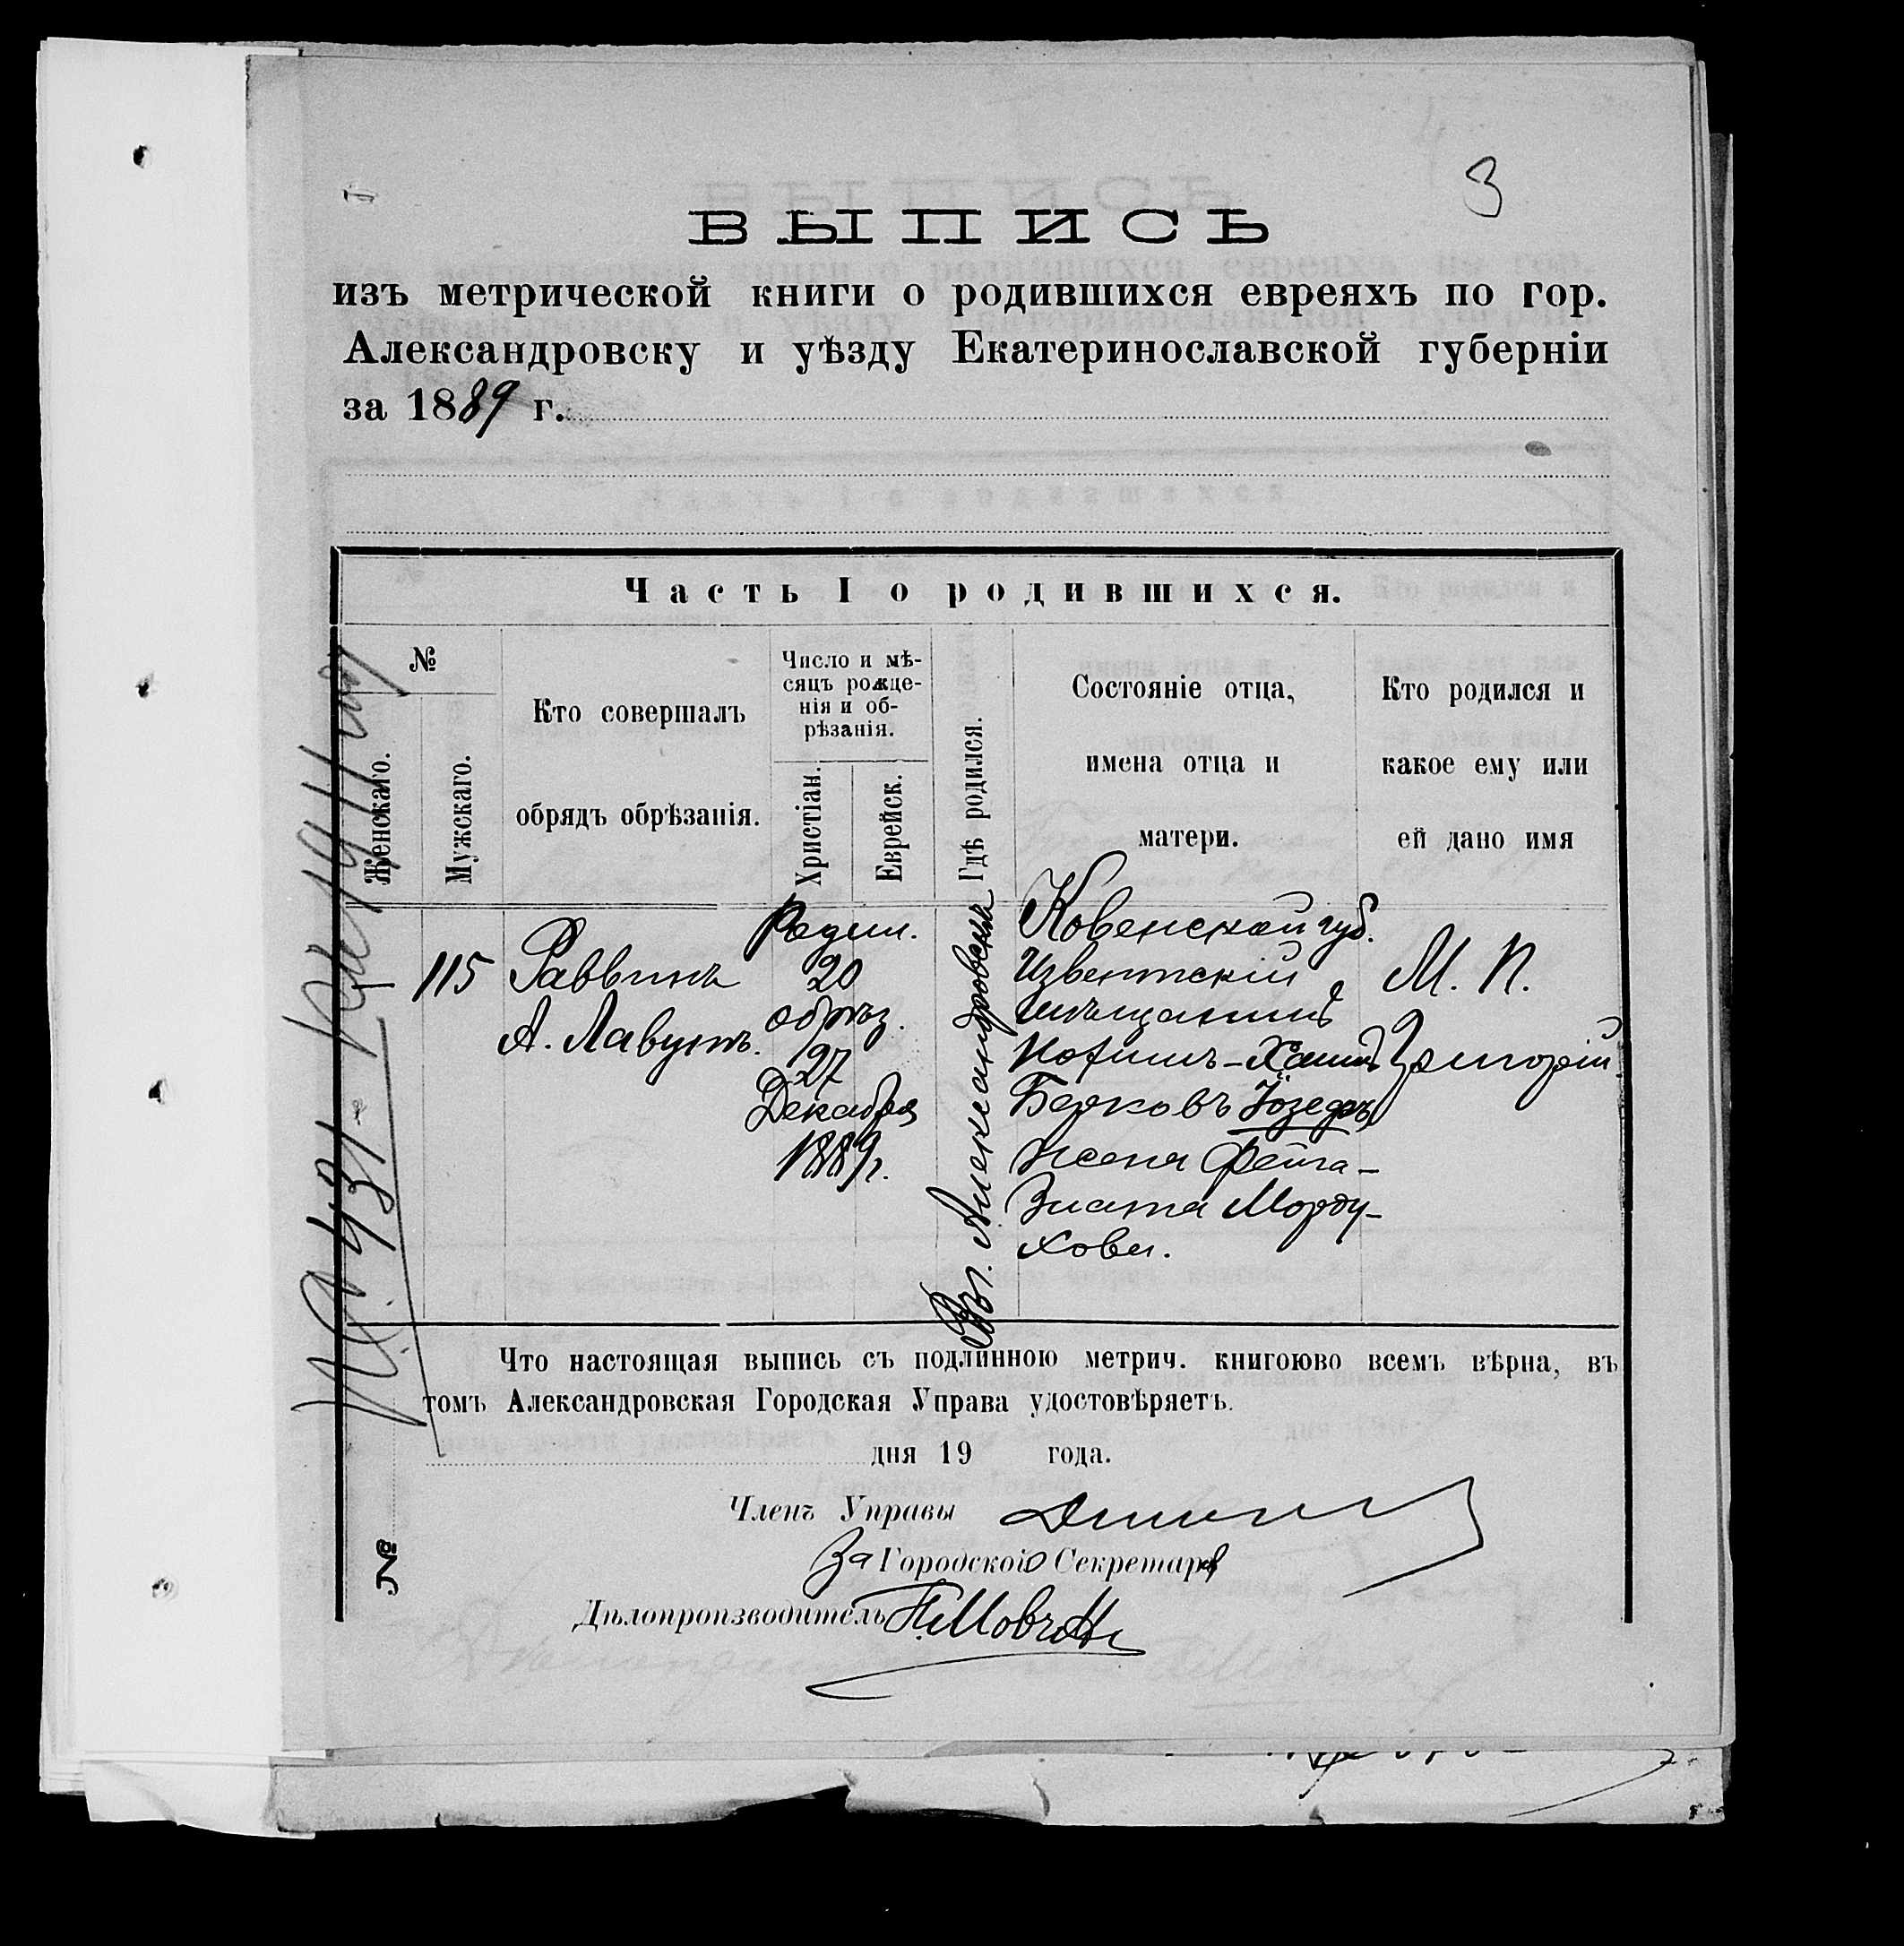 3
ВЫПИСЬ
изъ метрической книги о родившихся евреяхъ по гор.
Александровску и уѣзду Екатеринославской губерніи
за 1889 г.
Часть I о родившихся.
№
Женскаго.
Мужскаго.
Кто совершалъ
обрядъ обрѣзанія.
Число и мѣ-
сяцъ рожде-
нія и об-
рѣзанія.
Христіан.
Еврейск.
Гдѣ родился.
Состояніе отца,
имена отца и
матери.
Кто родился и
какое ему или
ей дано имя
115
Раввинъ
А. Лавутъ.
Родил.
20
обрѣз.
27
Декабря
1889 г.
Въ г. Александровскѣ
Ковенской губ.
мѣщанинъ
Берковъ
Жена Фейга-
Злата Морду-
хова.
М. П.
Григорій.
№ 431
Что настоящая выпись съ подлинною метрич. книгоюво всемъ вѣрна, въ
томъ Александровская Городская Управа удостовѣряетъ.
дня 19 года.
Членъ Управы
За Городского Секретаря
№
Дѣлопроизводитель